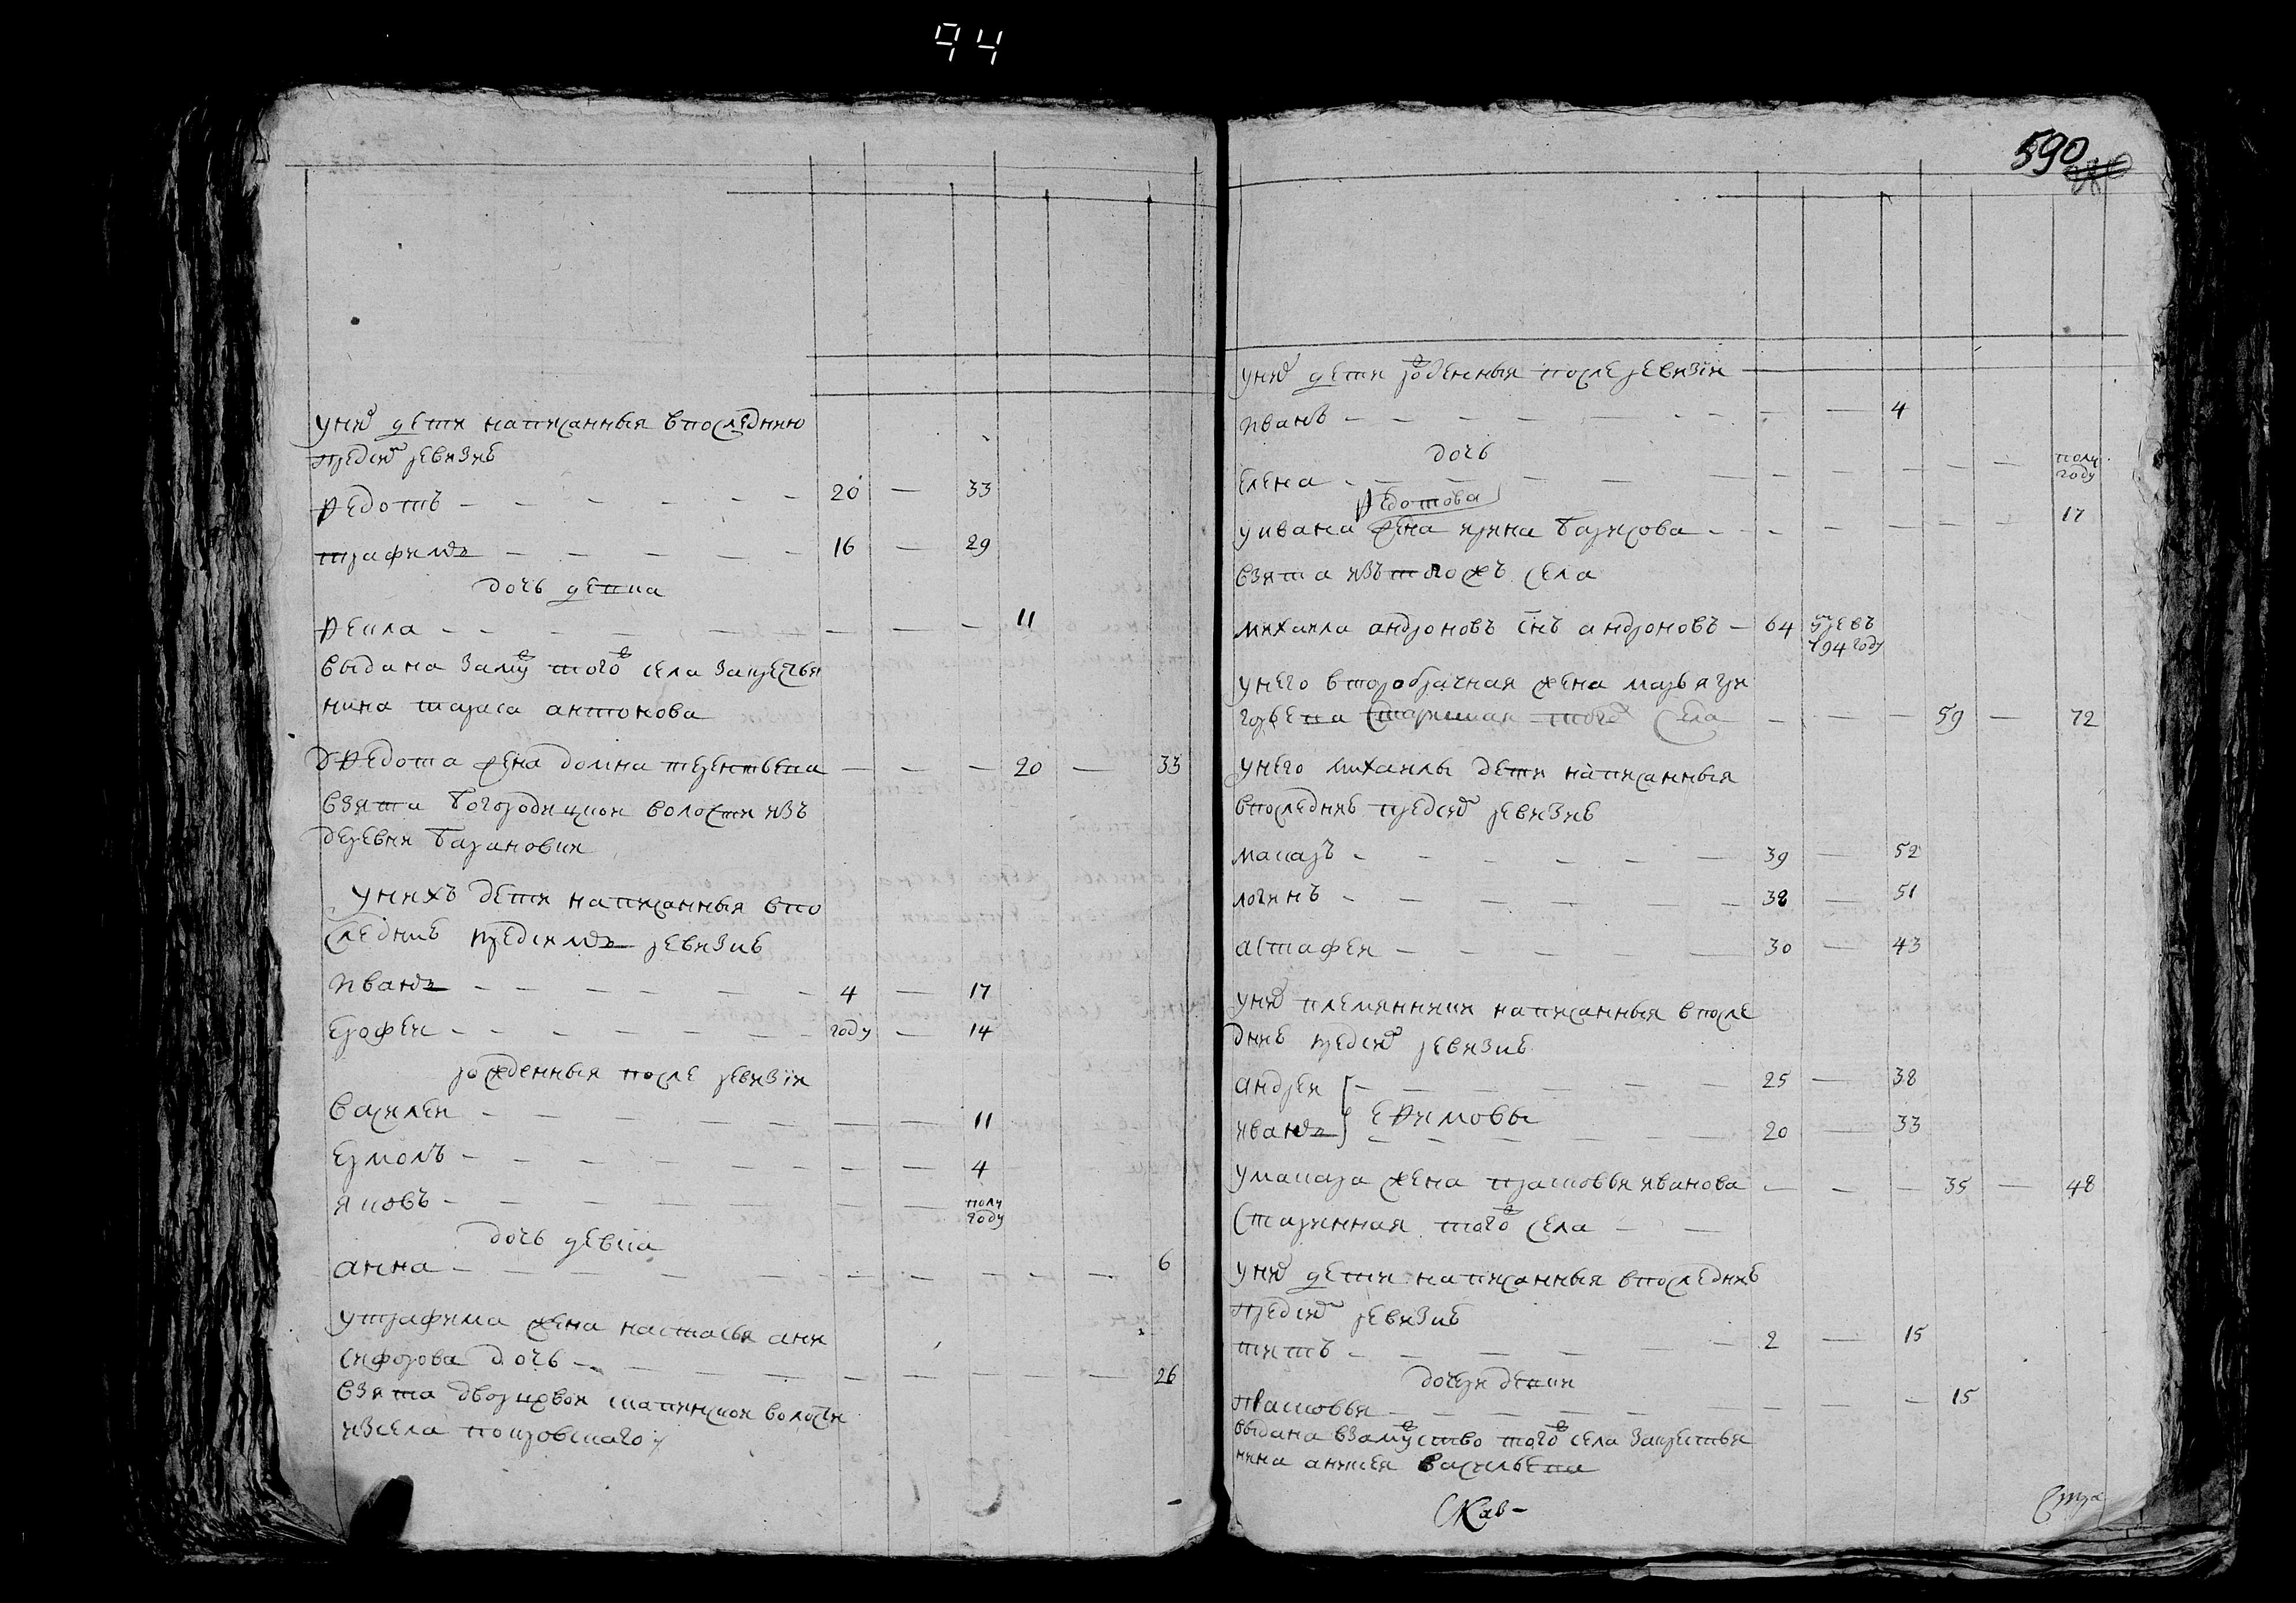 94
у них дети написанныя в последнию
пред сих ревизиѣ
Ѳедотъ — 20 — 33
трафимъ — 16 — 29
дочь девка
Ѳекла — 11
выдана замуж того ж села за крестья
нина тараса антонова
у Ѳедота жена домна терентьева — 20 — 33
взята богородицкой волости изъ
деревни
у нихъ дети написанныя в по
следнѣ пред симъ ревизиѣ
иванъ — 4 — 17
ерофеи — году — 14
рожденныя после ревизїи
василеи — 11
ермолъ — 4
яковъ — полу году
дочь девка
анна — 6
у трафима жена настасья ани
сифорова дочь — 26
взята дворцовой волости
из села покровскаго
590
у них дети рожденныя после ревизїи
иванъ — 4
дочь
елена — полу году
Ѳедотова
у ивана жена ирина борисова — 17
взята изъ того жъ села
михаила андроновъ снъ андроновъ — 64 умре въ 794 году
у него второбрачная жена марья гри
горьева старинная того ж села — 59 — 72
у него михаилы дети написанныя
в последнѣ пред сих ревизиѣ
макаръ — 39 — 52
логинъ — 38 — 51
астафеи — 30 — 43
у них племянники написанныя в после
днѣ пред сих ревизиѣ
андреи — 25 — 38
иванъ } еѲимовы — 20 — 33
у макара жена прасковья иванова — 35 — 48
старинная того ж села
у них дети написанныя в последнѣ
пред сих ревизиѣ
титъ — 2 — 15
дочери девки
прасковья — 15
выдана в замужство того ж села за крестья
нина васильева
Скав-